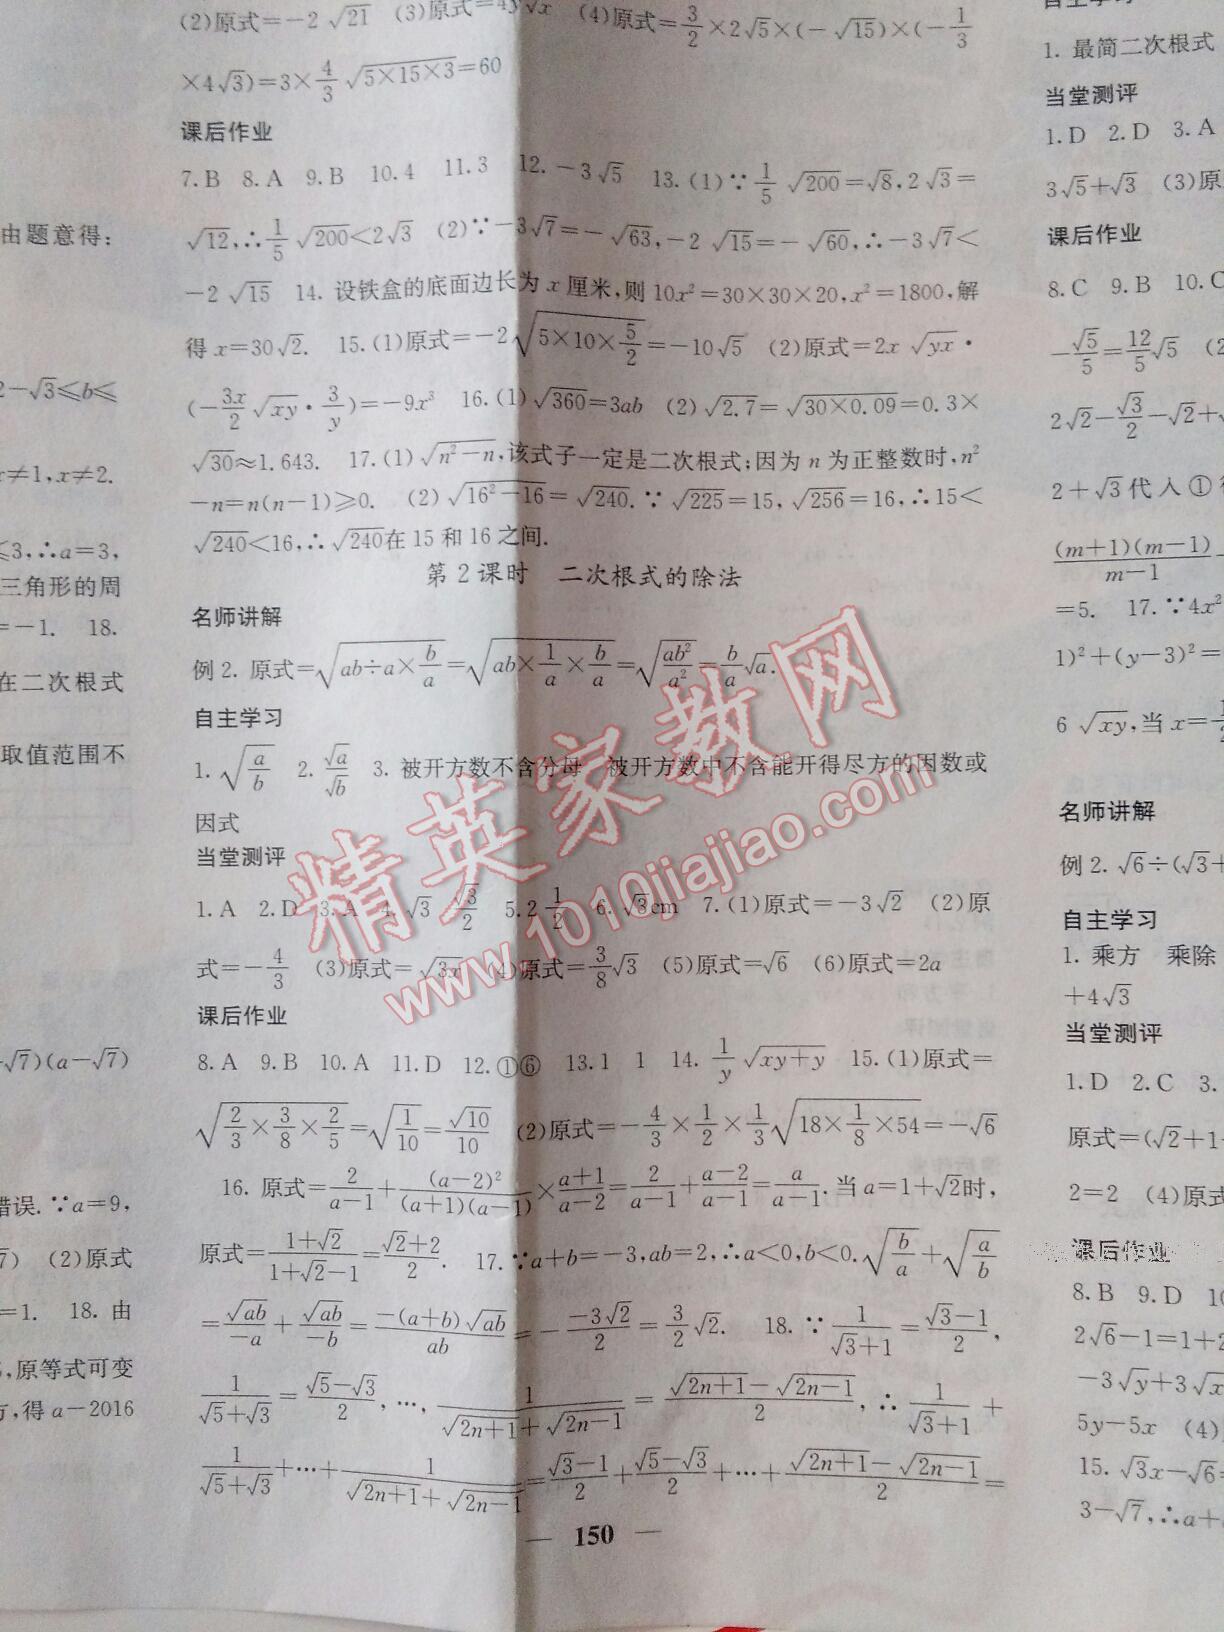 (2)原式=-2√21 (3)原式=4y√x (4)原式=3/2×2√5×(-√15)×(-1/3
×4√3)=3×4/3√(5×15×3)=60
课后作业
7.B 8.A 9.B 10.4 11.3 12.-3√5 13.(1)∵1/5√200=√8,2√3=
√12,∴1/5√200<2√3 (2)∵-3√7=-√63,-2√15=-√60,∴-3√7<
-2√15 14.设铁盒的底面边长为x厘米,则10x²=30×30×20,x²=1800,解
得x=30√2. 15.(1)原式=-2√(5×10×5/2)=-10√5 (2)原式=2x√yx·
(-3x/2√xy·3/y)=-9x³ 16.(1)√360=3ab (2)√2.7=√(30×0.09)=0.3×
√30≈1.643. 17.(1)√(n²-n),该式子一定是二次根式;因为n为正整数时,n²
-n=n(n-1)≥0. (2)√(16²-16)=√240.∵√225=15,√256=16,∴15<
√240<16,∴√240在15和16之间.
第2课时 二次根式的除法
名师讲解
例2.原式=√(ab÷a×b/a)=√(ab×1/a×b/a)=√(ab²/a²)=b/a√a.
自主学习
1.√(a/b) 2.√a/√b 3.被开方数不含分母 被开方数中不含能开得尽方的因数或
因式
当堂测评
1.A 2.D 3.A 4.√3 √3/2 5.2 1/2 6.√3cm 7.(1)原式=-3√2 (2)原
式=-4/3 (3)原式=√3x (4)原式=3/8√3 (5)原式=√6 (6)原式=2a
课后作业
8.A 9.B 10.A 11.D 12.①⑥ 13.1 1 14.1/y√(xy+y) 15.(1)原式=
√(2/3×3/8×2/5)=√(1/10)=√10/10 (2)原式=-4/3×1/2×1/3√(18×1/8×54)=-√6
16.原式=2/(a-1)+(a-2)²/((a+1)(a-1))×(a+1)/(a-2)=2/(a-1)+(a-2)/(a-1)=a/(a-1).当a=1+√2时,
原式=(1+√2)/(1+√2-1)=(√2+2)/2. 17.∵a+b=-3,ab=2,∴a<0,b<0.√(b/a)+√(a/b)
=√ab/-a+√ab/-b=-(a+b)√ab/ab=--3√2/2=3/2√2. 18.∵1/(√3+1)=(√3-1)/2,
1/(√5+√3)=(√5-√3)/2,…,1/(√(2n+1)+√(2n-1))=(√(2n+1)-√(2n-1))/2,∴1/(√3+1)+
1/(√5+√3)+…+1/(√(2n+1)+√(2n-1))=(√3-1)/2+(√5-√3)/2+…+(√(2n+1)-√(2n-1))/2=
150
由题意得:
2-√3≤b≤
x≠1,x≠2.
≤3,∴a=3,
三角形的周
=-1. 18.
在二次根式
取值范围不
√7)(a-√7)
错误.∵a=9,
(2)原式
=1. 18.由
原等式可变
得a-2016
自主学习
1.最简二次根式
当堂测评
1.D 2.D 3.A
3√5+√3 (3)原
课后作业
8.C 9.B 10.C
-√5/5=12/5√5
2√2-√3/2-√2+
2+√3代入①
(m+1)(m-1)/(m-1)
=5. 17.∵4x²
1)²+(y-3)²=
6√xy,当x=
名师讲解
例2.√6÷(√3+
自主学习
1.乘方 乘除
+4√3
当堂测评
1.D 2.C 3.
原式=(√2+1
2=2 (4)原式
课后作业
8.B 9.D
2√6-1=1+2
-3√y+3√x
5y-5x (4)
15.√3x-√6=
3-√7,∴a+
精英家教网
www.1010jiajiao.com